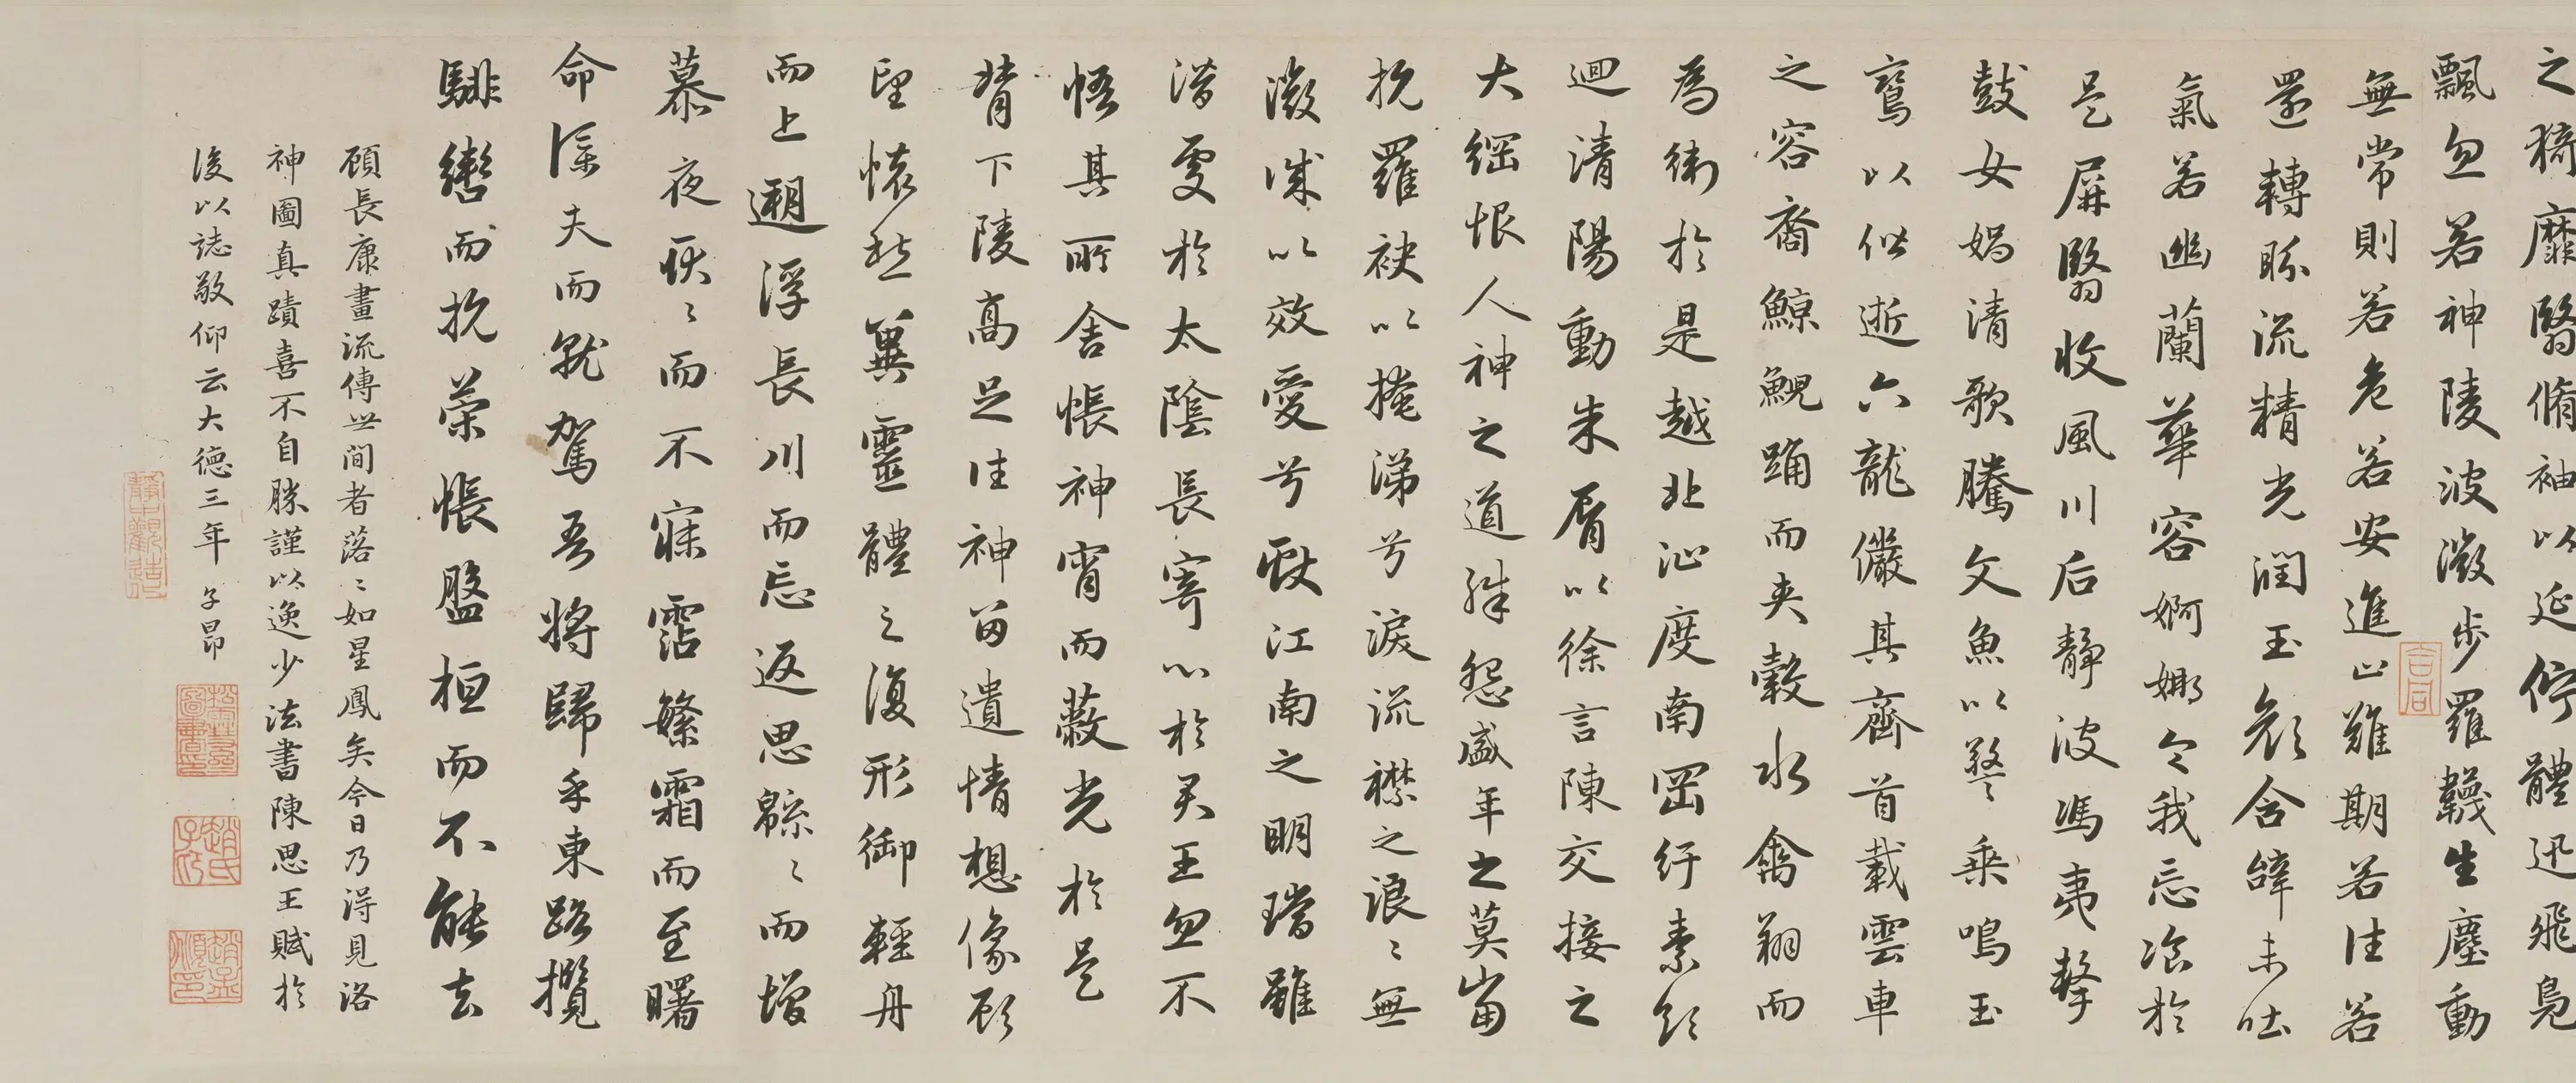 之猗靡翳脩袖以延佇體迅飛鳧
飄忽若神陵波微步羅韈生塵動
無常則若危若安進止難期若往若
還轉眄流精光潤玉顏含辭未吐
氣若幽蘭華容婀娜令我忘飡於
是屏翳收風川后靜波馮夷擊
鼓女媧清歌騰文魚以警乘鳴玉
鸞以偕逝六龍儼其齊首載雲車
之容裔鯨鯢踊而夾轂水禽翔而
為衛於是越北沚度南岡紆素領
迴清陽動朱脣以徐言陳交接之
大綱恨人神之道殊怨盛年之莫當
抗羅袂以掩涕兮淚流襟之浪〻無
微誠以效愛兮獻江南之明璫雖
潛處於太陰長寄心於君王忽不
悟其所舍悵神宵而蔽光於是
背下陵高足往神留遺情想像顧
望懷愁冀靈體之復形御輕舟
而上遡浮長川而忘返思緜〻而增
慕夜耿〻而不寐霑繁霜而至曙
命僕夫而就駕吾將歸乎東路攬
騑轡而抗策悵盤桓而不能去
顧長康畫流傳世間者落〻如星鳳矣今日乃得見洛
神圖真蹟喜不自勝謹以逸少法書陳思王賦於
後以誌敬仰云大德三年 子昂
合同
靜中觀造
松雪齋圖書印
趙氏子昂
趙孟頫印